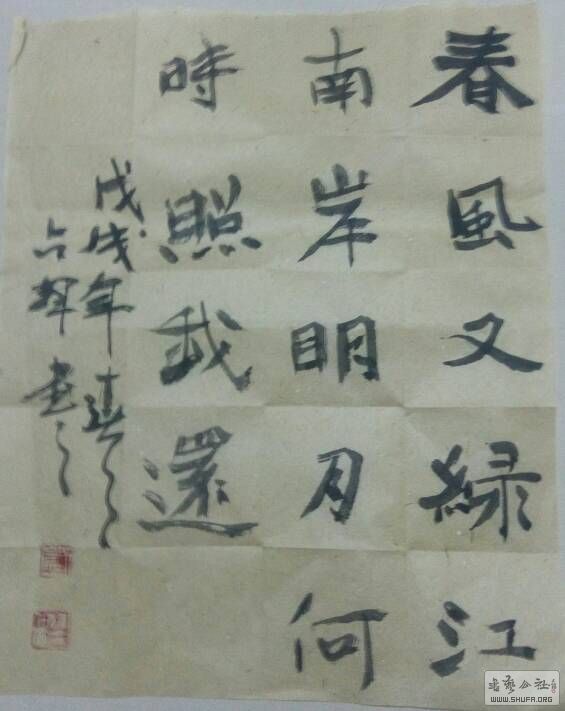 春風又緑江
南岸明月何
時照我還
戊戌年春
書
WWW.SHUFA.ORG